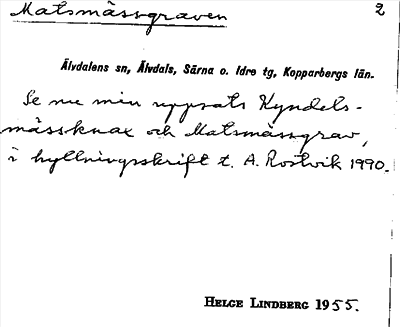 Matsmässgraven 2
Älvdalens sn, Älvdals, Särna o. Idre tg, Kopparbergs län.
Se nu min uppsats Kyndels-
mässknax och Matsmässgrav,
i hyllningsskrift t. A. Rostvik 1990.
HELGE LINDBERG 1955.